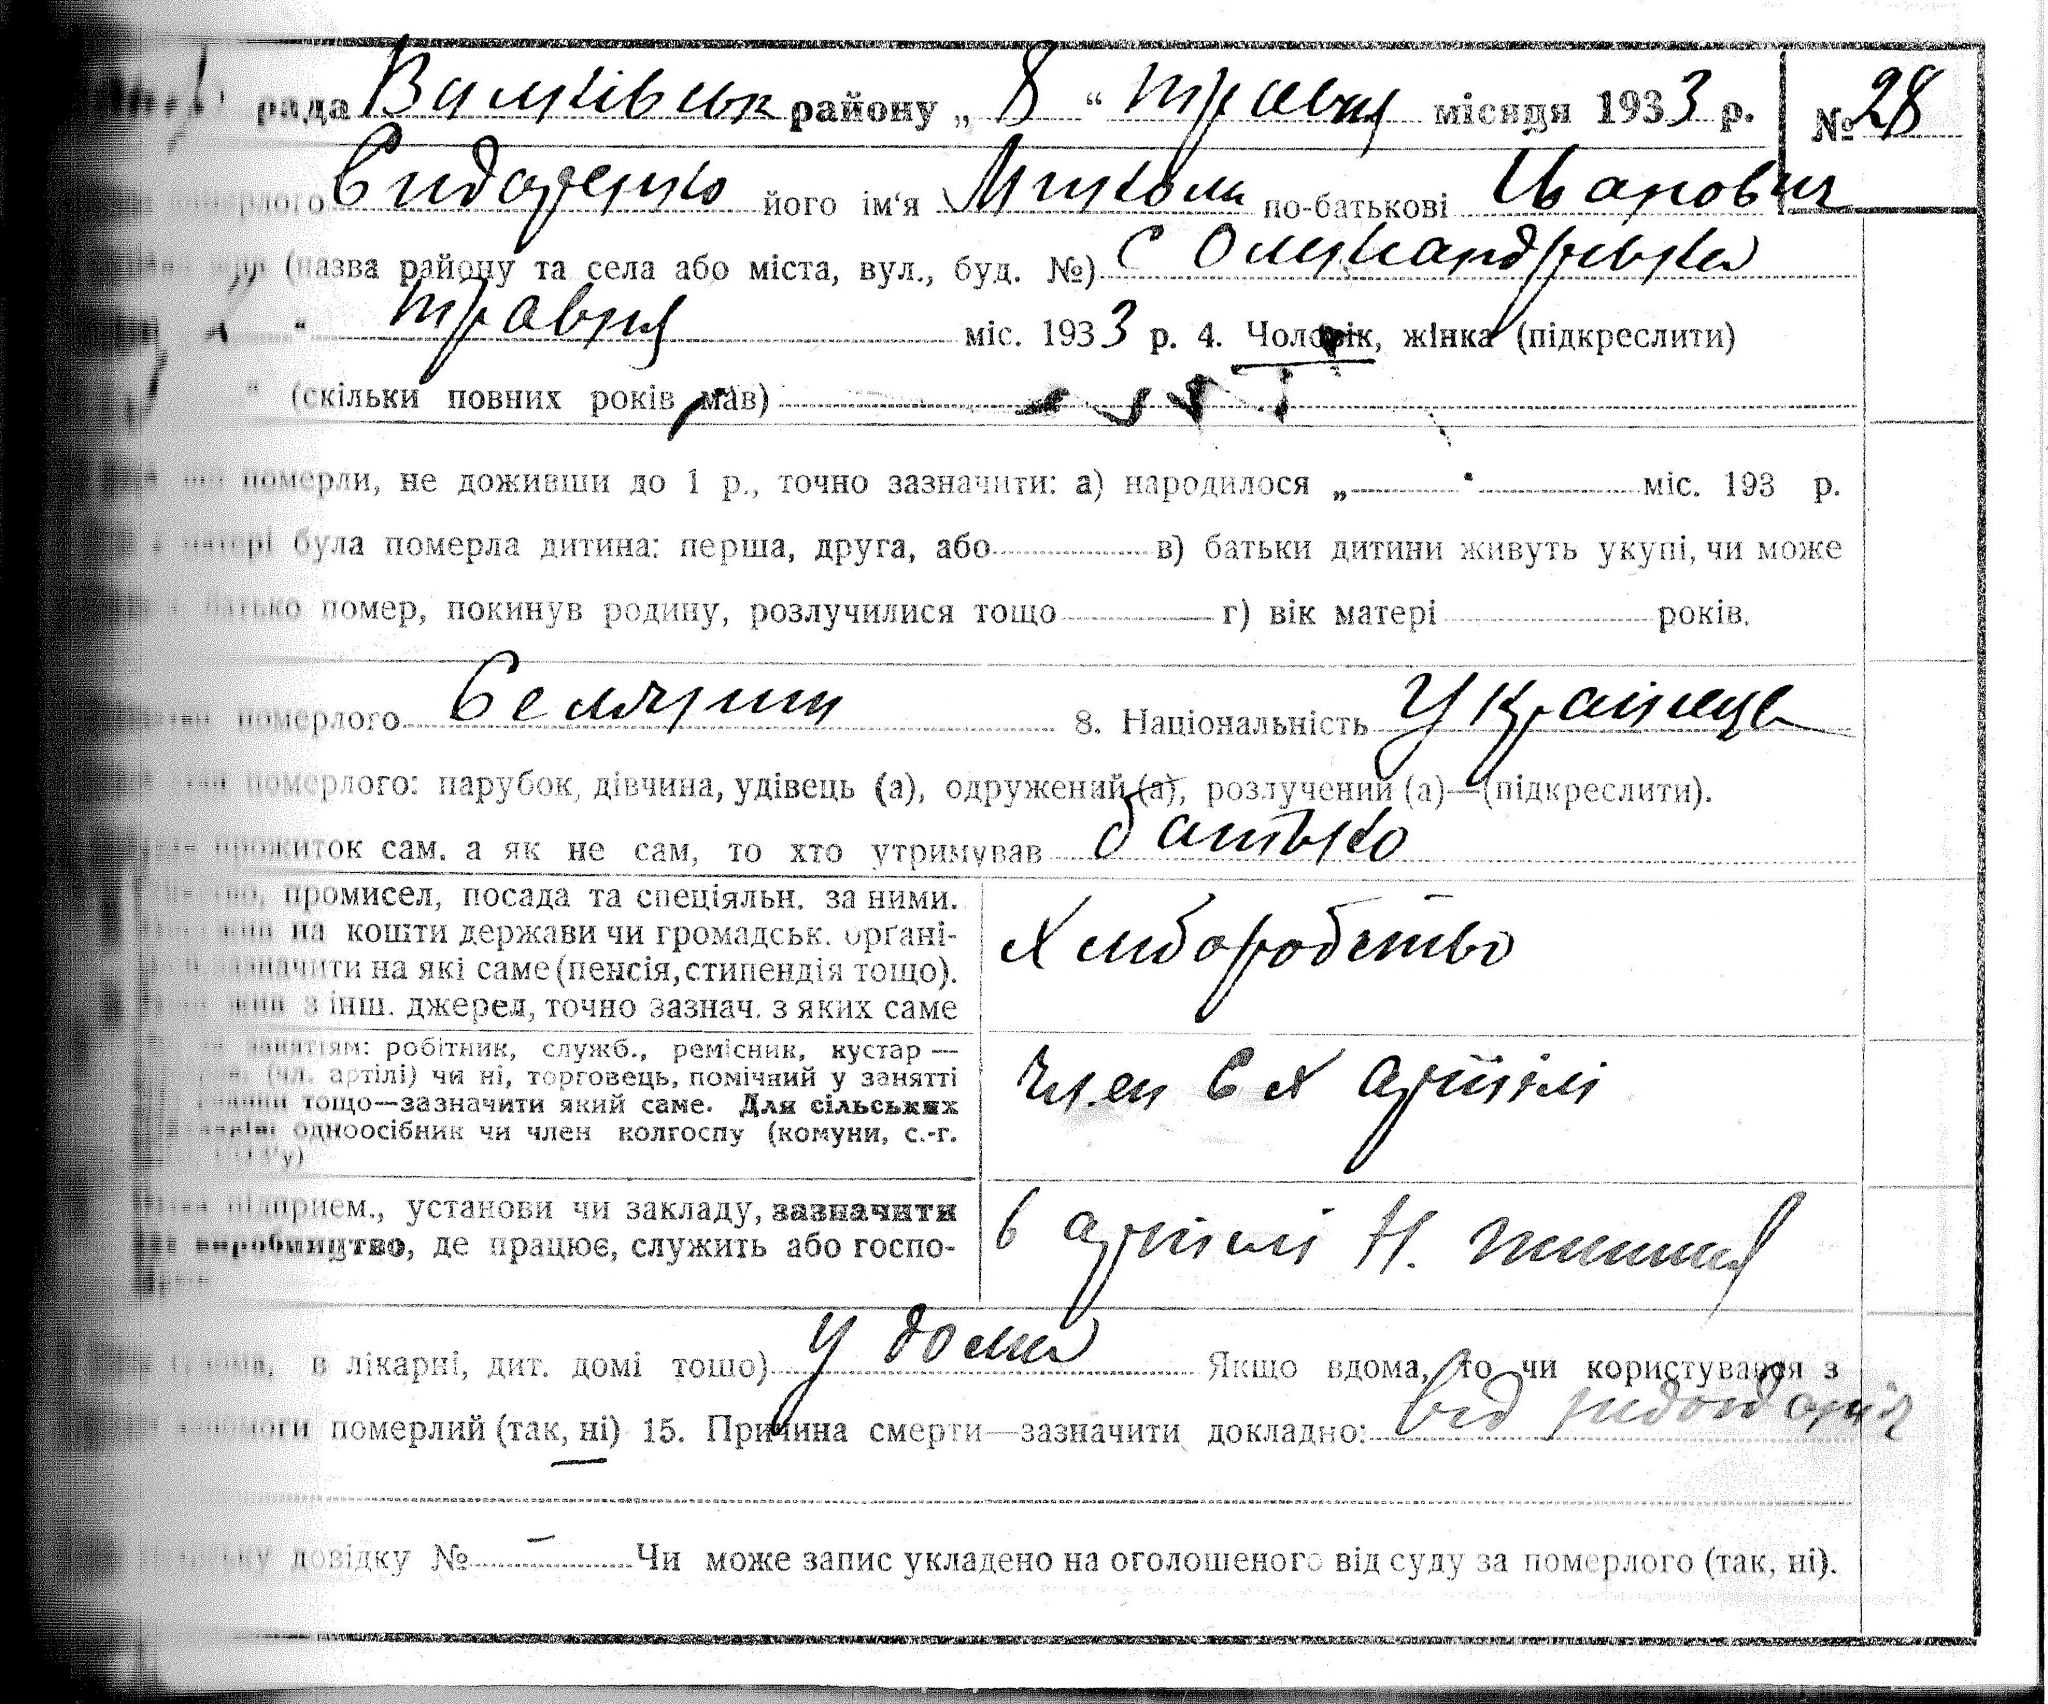 рада Валківськ району „ 8 “ травня місяця 1933 р. № 28
померлого Сидоренко його ім‘я Микола по-батькові Іванович
(назва району та села або міста, вул., буд. №) с Олександрівка
“ травня міс. 1933 р. 4. Чоловік, жінка (підкреслити)
“ (скільки повних років мав)
померли, не доживши до 1 р., точно зазначити: а) народилося „ “ міс. 193 р.
матері була померла дитина: перша, друга, або в) батьки дитини живуть укупі, чи може
батько помер, покинув родину, розлучилися тощо г) вік матері років.
померлого Селянин 8. Національність Українець
померлого: парубок, дівчина, удівець (а), одружений (а), розлучений (а)—(підкреслити).
прожиток сам, а як не сам, то хто утримував батько
промисел, посада та спеціяльн. за ними.
на кошти держави чи громадськ. органі-
зазначити на які саме (пенсія, стипендія тощо).
жив з інш. джерел, точно зазнач. з яких саме
Хліборобство
заняттям: робітник, служб., ремісник, кустар —
(чл. артілі) чи ні, торговець, помічний у занятті
тощо—зазначити який саме. Для сільських
одноосібник чи член колгоспу (комуни, с.-г.
член С Х артілі
підприєм., установи чи закладу, зазначити
виробництво, де працює, служить або госпо-
в артілі Н. життя
в лікарні, дит. домі тощо) у дома Якщо вдома, то чи користувався з
допомоги померлий (так, ні) 15. Причина смерти—зазначити докладно: від
довідку № – Чи може запис укладено на оголошеного від суду за померлого (так, ні).